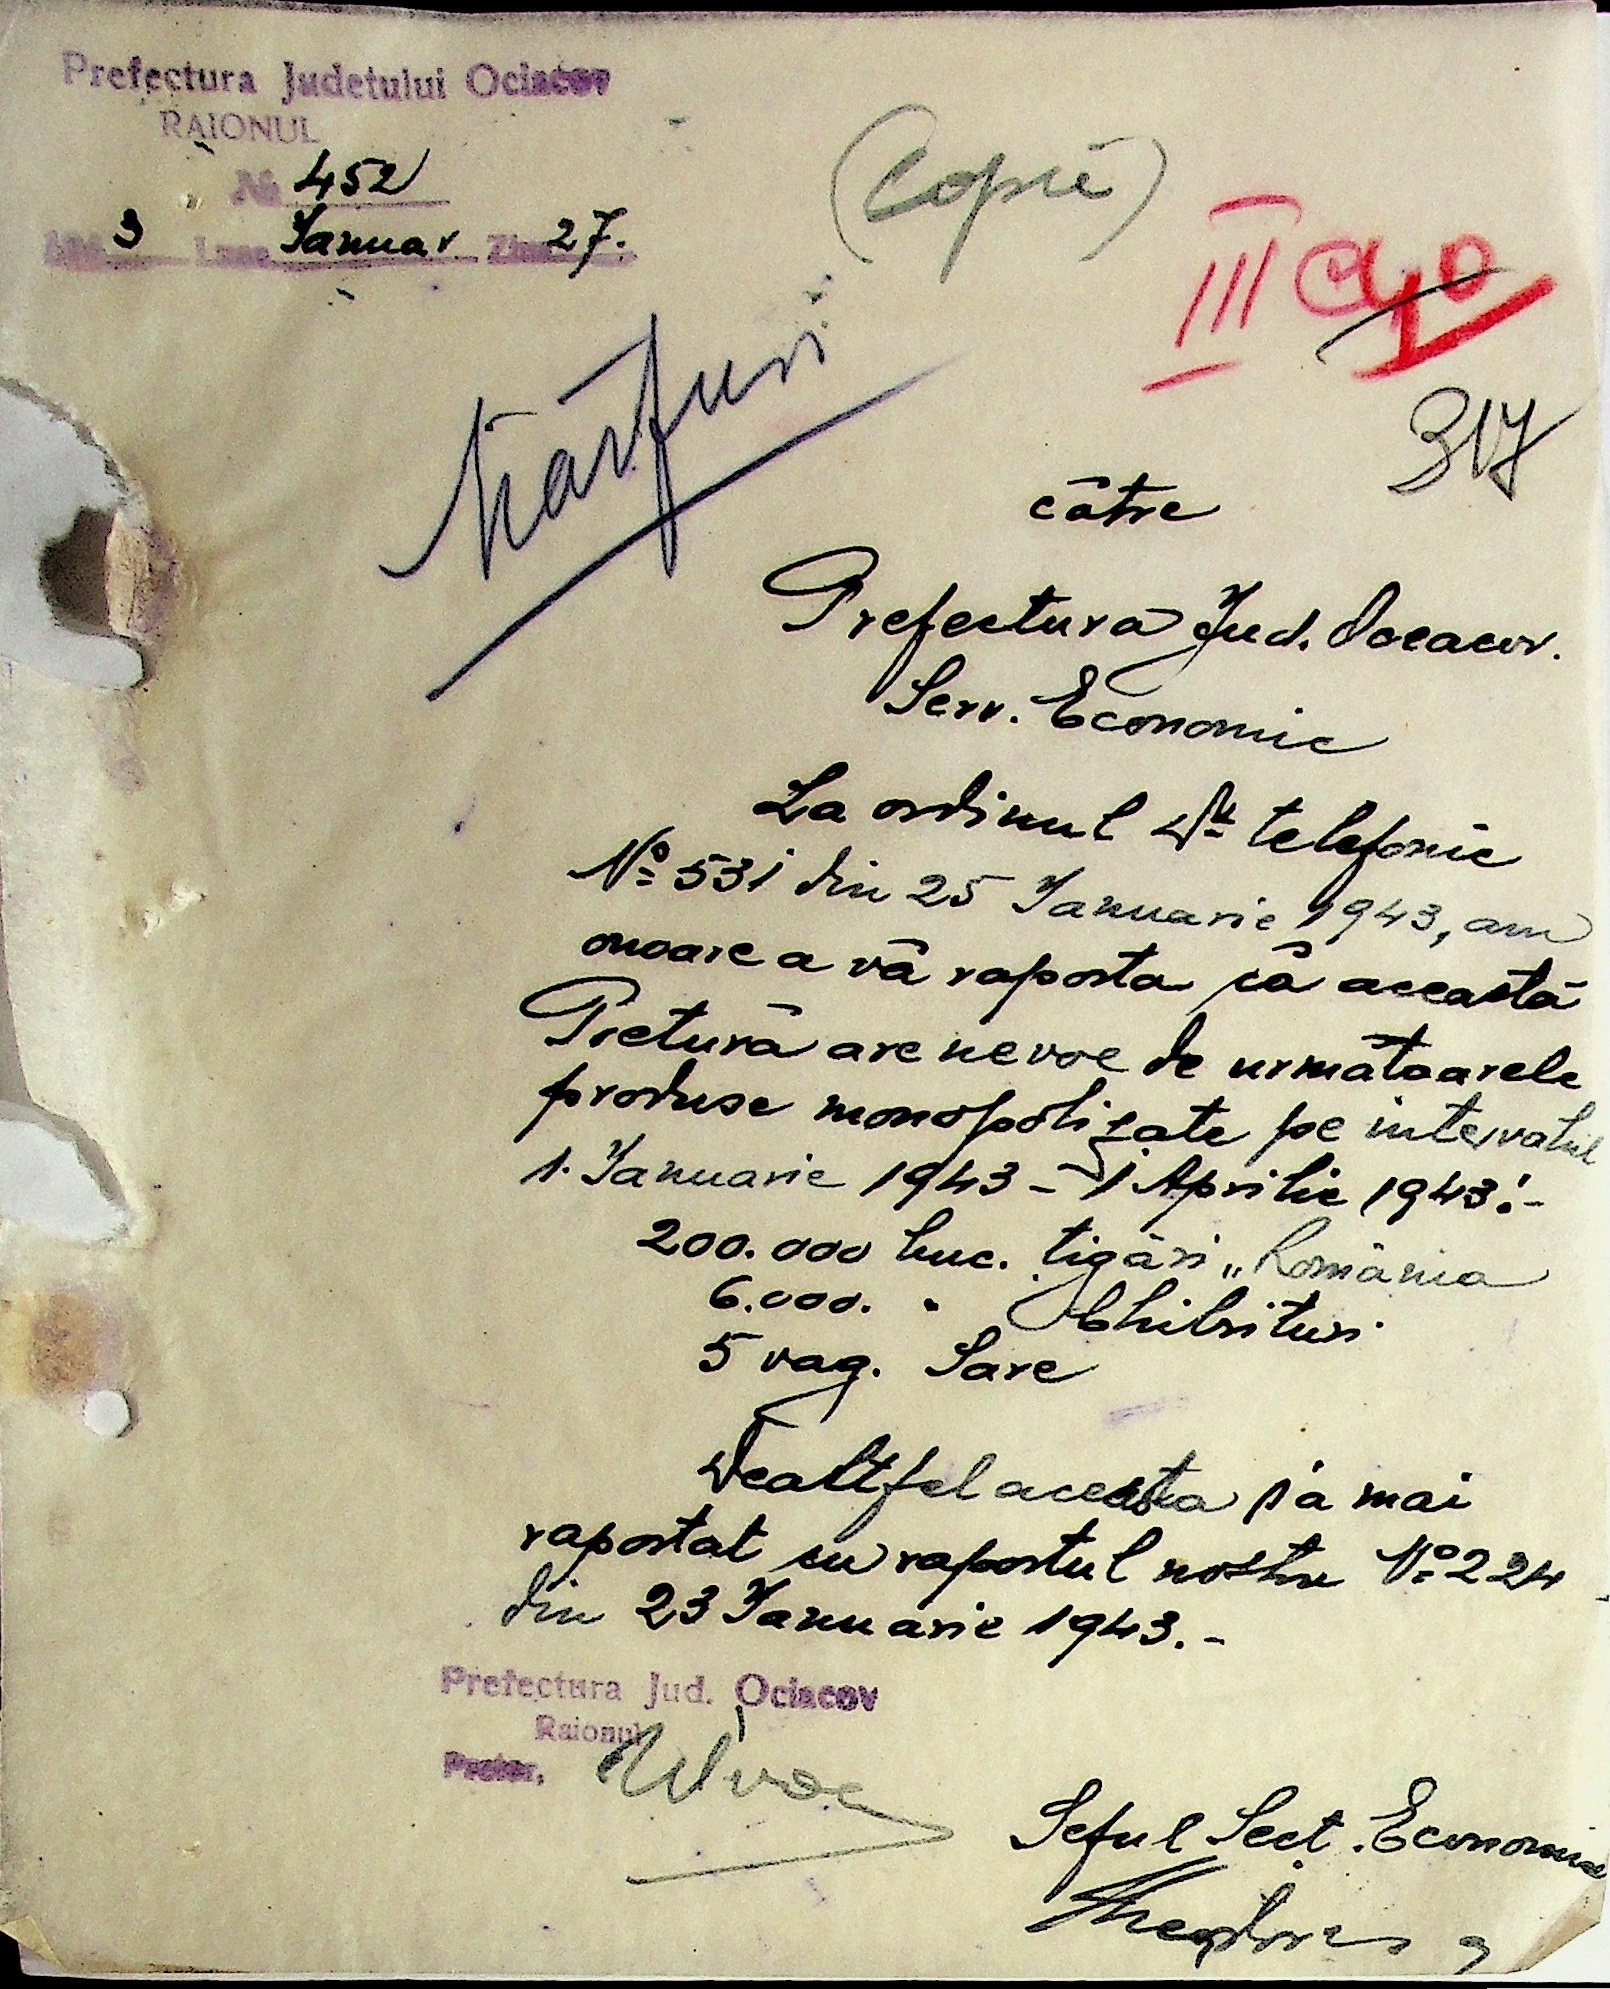 Prefectura Judetului Ociacov
RAIONUL
№ 452
3 Luna Januar. Ziua 27.
(Copie)
III
317
către
Prefectura Jud. Oceacov.
Serv. Economic
La ordinul telefonic
No 531 din 25 Ianuarie 1943, am
onoare a vă raporta că această
Pretură are nevoe de următoarele
produse monopolizate pe intervalul
1. Ianuarie 1943 – 1 Aprilie 1943:-
200.000 buc. țigări „România
6.000. " Chibrituri
5 vag. Sare
Dealtfel aceasta s'a mai
raportat cu raportul nostru No 224
din 23 Ianuarie 1943.-
Prefectura Jud. Ociacov
Raionul
Pretor,
Seful Sect. Economic